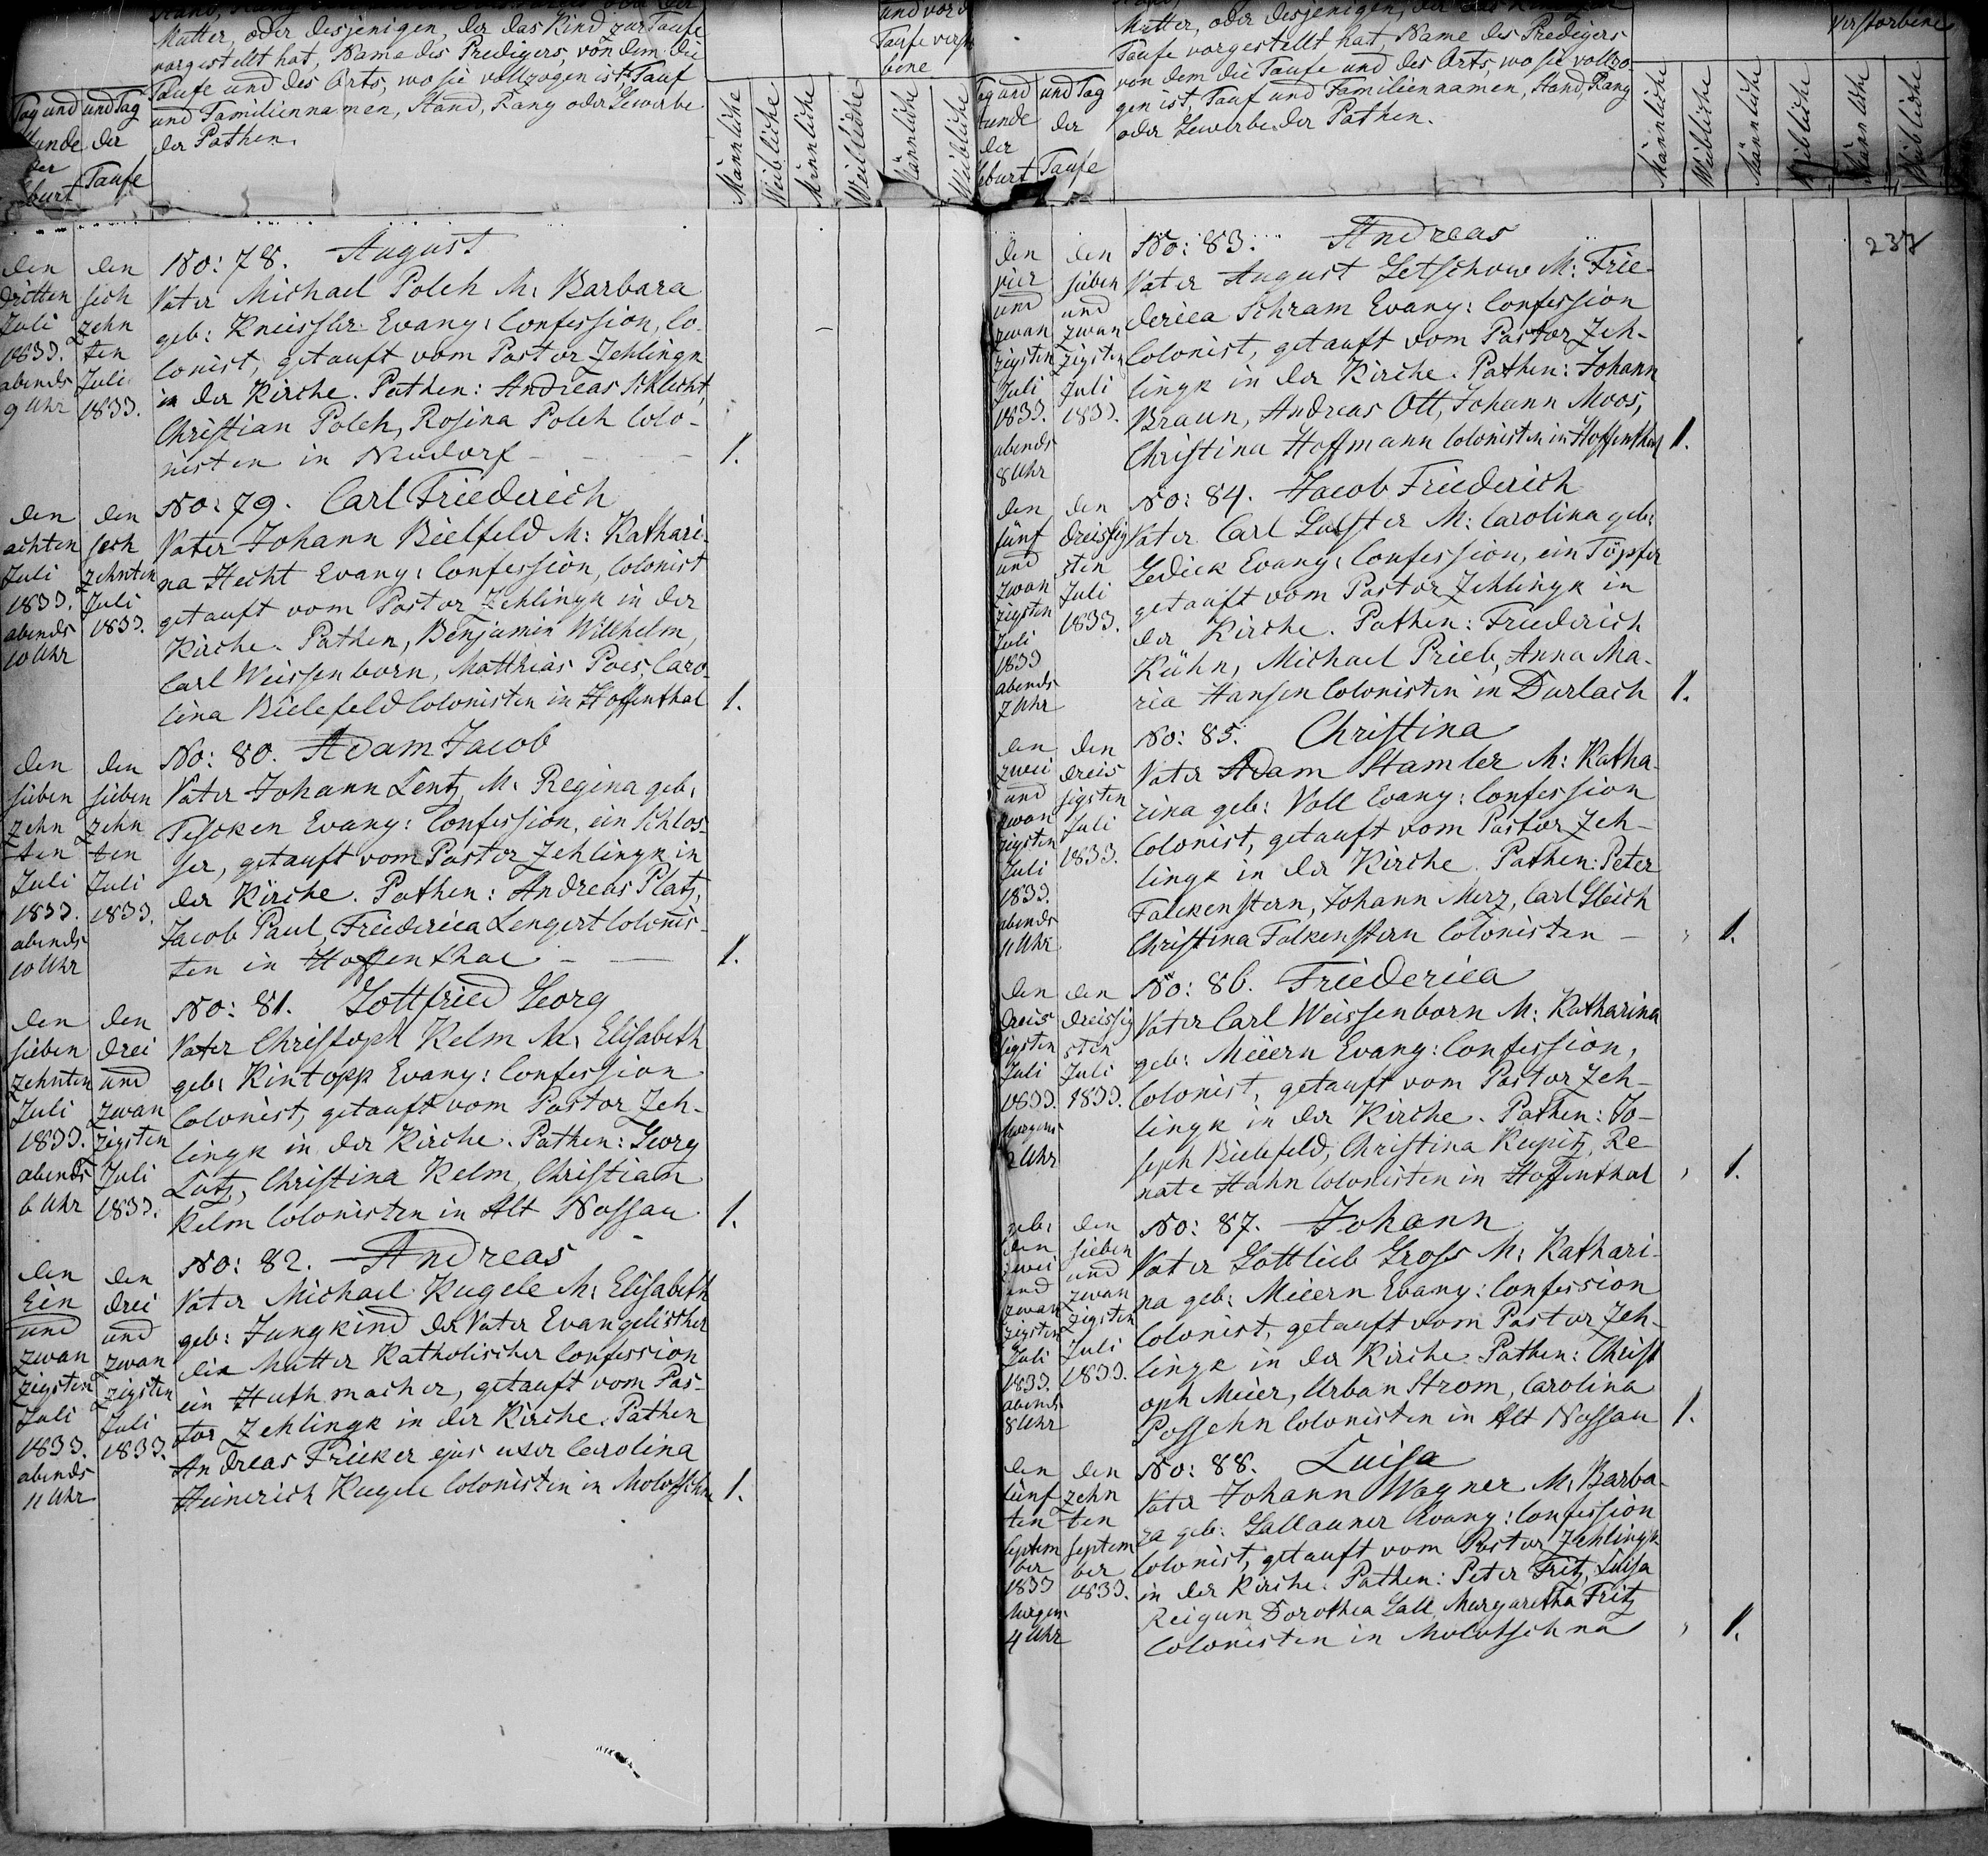 Mutter, oder desjenigen, der das Kind zur Taufe
vorgestellt hat, Name des Predigers, von dem die
Taufe und des Orts, wo sie vollzogen ist Tauf
und Familiennamen, Stand, Rang oder Gewerbe
der Pathen.
und vor d
Taufe verst
bene
Tag und
Stunde
der
Geburt
und Tag
der
Taufe
Männliche
Weibliche
Männliche
Weibliche
Männliche
Weibliche
den
dritten
Juli
1833.
abends
9 Uhr
den
sech
zehn
ten
Juli
1833.
No: 78. August
Vater Michael Polch M: Barbara
geb: Kneissler Evang: Confession, Co-
lonist, getauft vom Pastor Zehlingk
in der Kirche. Pathen: Andreas Schlecht,
Christian Polch, Rosina Polch Colo-
nisten in Neudorf - - - 1.
den
achten
Juli
1833.
abends
10 Uhr
den
sech
zehnten
Juli
1833.
No: 79. Carl Friederich
Vater Johann Bielfeld M: Kathari-
na Hecht Evang: Confession, Colonist
getauft vom Pastor Zehlingk in der
Kirche. Pathen, Benjamin Willhelm,
Carl Weissenborn, Matthias Poes, Caro-
lina Bielefeld Colonisten in Hoffenthal 1.
den
sieben
zehn
ten
Juli
1833.
abends
10 Uhr
den
sieben
zehn
ten
Juli
1833.
No: 80. Adam Jacob
Vater Johann Lentz M: Regina geb:
Tescken Evang: Confession, ein Schlos-
ser, getauft vom Pastor Zehlingk in
der Kirche. Pathen: Andreas Platz,
Jacob Paul, Friederica Lengert Colonis-
ten in Hoffenthal - - 1.
den
sieben
zehnten
Juli
1833.
abends
6 Uhr
den
drei
und
zwan
zigsten
Juli
1833.
No: 81. Gottfried Georg
Vater Christoph Kelm M: Elisabeth
geb: Kintopp Evang: Confession
Colonist, getauft vom Pastor Zeh-
lingk in der Kirche. Pathen: Georg
Lutz, Christina Kelm, Christian
Kelm Colonisten in Alt Nassau 1.
den
Ein
und
zwan
zigsten
Juli
1833.
abends
11 Uhr
den
drei
und
zwan
zigsten
Juli
1833.
No: 82. Andreas
Vater Michael Kugele M: Elisabeth
geb: Jungkind der Vater Evangelischer
die Mutter Katholischer Confession
ein Huthmacher, getauft vom Pas-
tor Zehlingk in der Kirche. Pathen
Andreas Fricker ejus uxor Carolina
Heinerich Kugele Colonisten in Molotschna 1.
Mutter, oder desjenigen, der das Kind zur
Taufe vorgestellt hat, Name des Predigers
von dem die Taufe und des Orts, wo sie vollzo-
gen ist, Tauf und Familiennamen, Stand, Rang
oder Gewerbe der Pathen.
Verstorbene
Tag und
Stunde
der
Geburt
und Tag
der
Taufe
Männliche
Weibliche
Männliche
Weibliche
Männliche
Weibliche
237
den
vier
und
zwan
zigsten
Juli
1833.
abends
8 Uhr
den
sieben
und
zwan
zigsten
Juli
1833.
No: 83. Andreas
Vater August Getschow M: Frie-
derica Schram Evang: Confession
Colonist, getauft vom Pastor Zeh-
lingk in der Kirche. Pathen: Johann
Braun, Andreas Ott, Johann Moos,
Christina Hoffmann Colonisten in Hoffenthal 1.
den
fünf
und
zwan
zigsten
Juli
1833
abends
7 Uhr
den
dreissig
sten
Juli
1833.
No: 84. Jacob Friederich
Vater Carl M: Carolina geb:
Gedick Evang: Confession, ein Töpfer
getauft vom Pastor Zehlingk in
der Kirche. Pathen: Friederich
Kühn, Michael Prieb, Anna Ma-
ria Hansen Colonisten in Durlach 1.
den
zwei
und
zwan
zigsten
Juli
1833.
abends
11 Uhr
den
dreis
sigsten
Juli
1833.
No: 85. Christina
Vater Adam Stamler M: Katha-
rina geb: Voll Evang: Confession
Colonist, getauft vom Pastor Zeh-
lingk in der Kirche. Pathen: Peter
Falckenstern, Johann Merz, Carl Gleich
Christina Falkenstern Colonisten - 1.
den
dreis
sigsten
Juli
1833.
Morgens
2 Uhr
den
dreissig
sten
Juli
1833.
No: 86. Friederica
Vater Carl Weissenborn M: Katharina
geb: Meiern Evang: Confession,
Colonist, getauft vom Pastor Zeh-
lingk in der Kirche. Pathen: Jo-
seph Bielefeld, Christina Kupitz, Re-
nate Hahn Colonisten in Hoffenthal 1.
geb:
den
zwei
und
zwan
zigsten
Juli
1833.
abends
8 Uhr
den
sieben
und
zwan
zigsten
Juli
1833.
No: 87. Johann
Vater Gottlieb Gross M: Kathari-
na geb: Meiern Evang: Confession
Colonist, getauft vom Pastor Zeh-
lingk in der Kirche. Pathen: Christ
oph Meier, Urban Strom, Carolina
Possehn Colonisten in Alt Nassau 1.
den
fünf
ten
Septem
ber
1833
Morgens
4 Uhr
den
zehn
ten
Septem
ber
1833.
No: 88. Luisa
Vater Johann Wagner M: Barba-
ra geb: Gallauner Evang: Confession
Colonist, getauft vom Pastor Zehlingk
in der Kirche. Pathen: Peter Fritz, Luisa
Reigun Dorothea Gall, Margaretha Fritz
Colonisten in Molotschna 1.